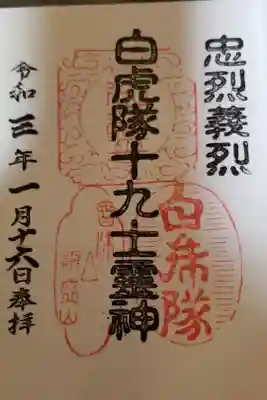 忠烈義烈
白虎隊十九士靈神
令和三年一月十六日奉拝
白虎隊